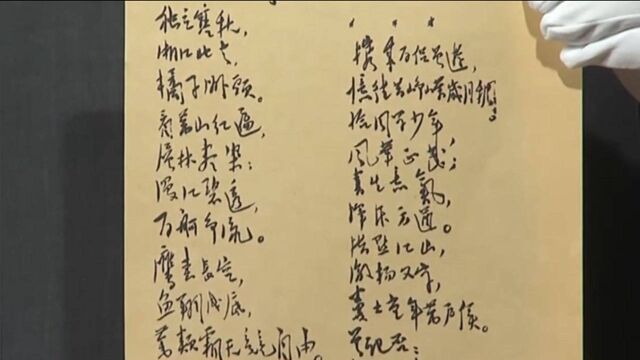 独立寒秋,
湘江北去,
橘子洲头。
看萬山红遍,
层林尽染;
漫江碧透,
百舸争流。
鹰击长空,
鱼翔浅底,
萬類霜天竞自由。
* * *
携来百侣曾游,
憶往昔峥嵘歲月稠。
恰同学少年,
風華正茂;
書生意氣,
挥斥方遒。
指点江山,
激扬文字,
粪土当年萬户侯。
曾记否: